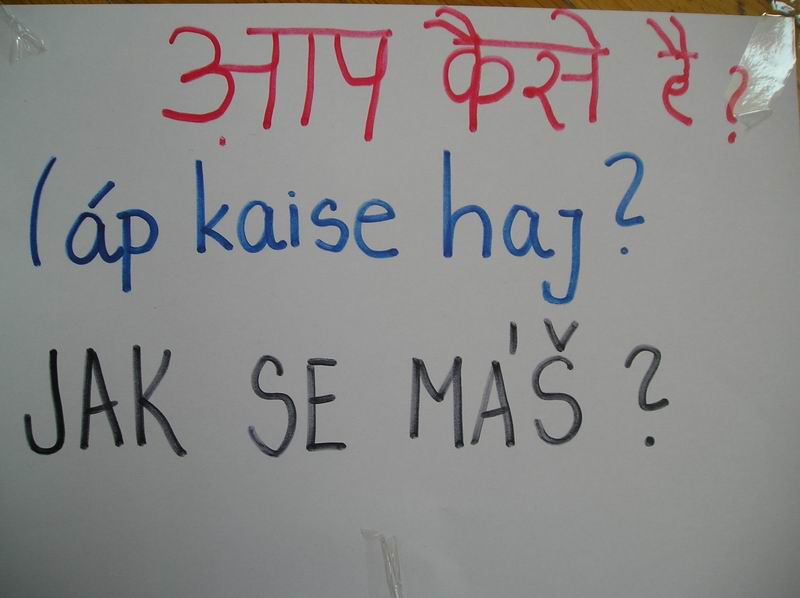 आप कैसे है?
(áp kaise haj?
JAK SE MÁŠ?